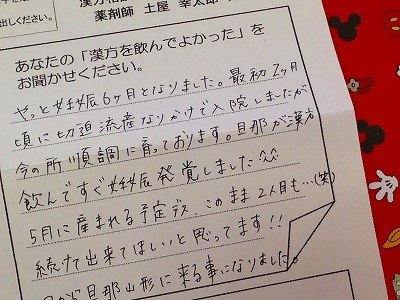 出しください。
漢方相談
薬剤師 土屋 幸太郎
あなたの「漢方を飲んでよかった」を
お聞かせください。
やっと妊娠6ヶ月となりました。最初2ヶ月
頃に切迫流産なりかけで入院しましたが
今の所順調に育っております。旦那が漢方
飲んですぐ妊娠発覚しました^^
5月に産まれる予定デス。このまま2人目も…(笑)
続けて出来てほしいと思ってます!!
旦那山形に来る事になりました。